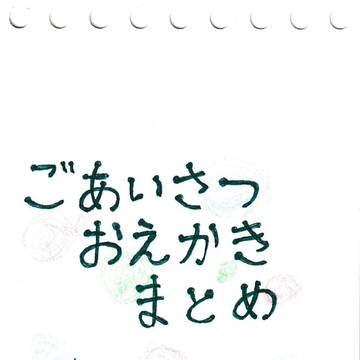 ごあいさつ
おえかき
まとめ